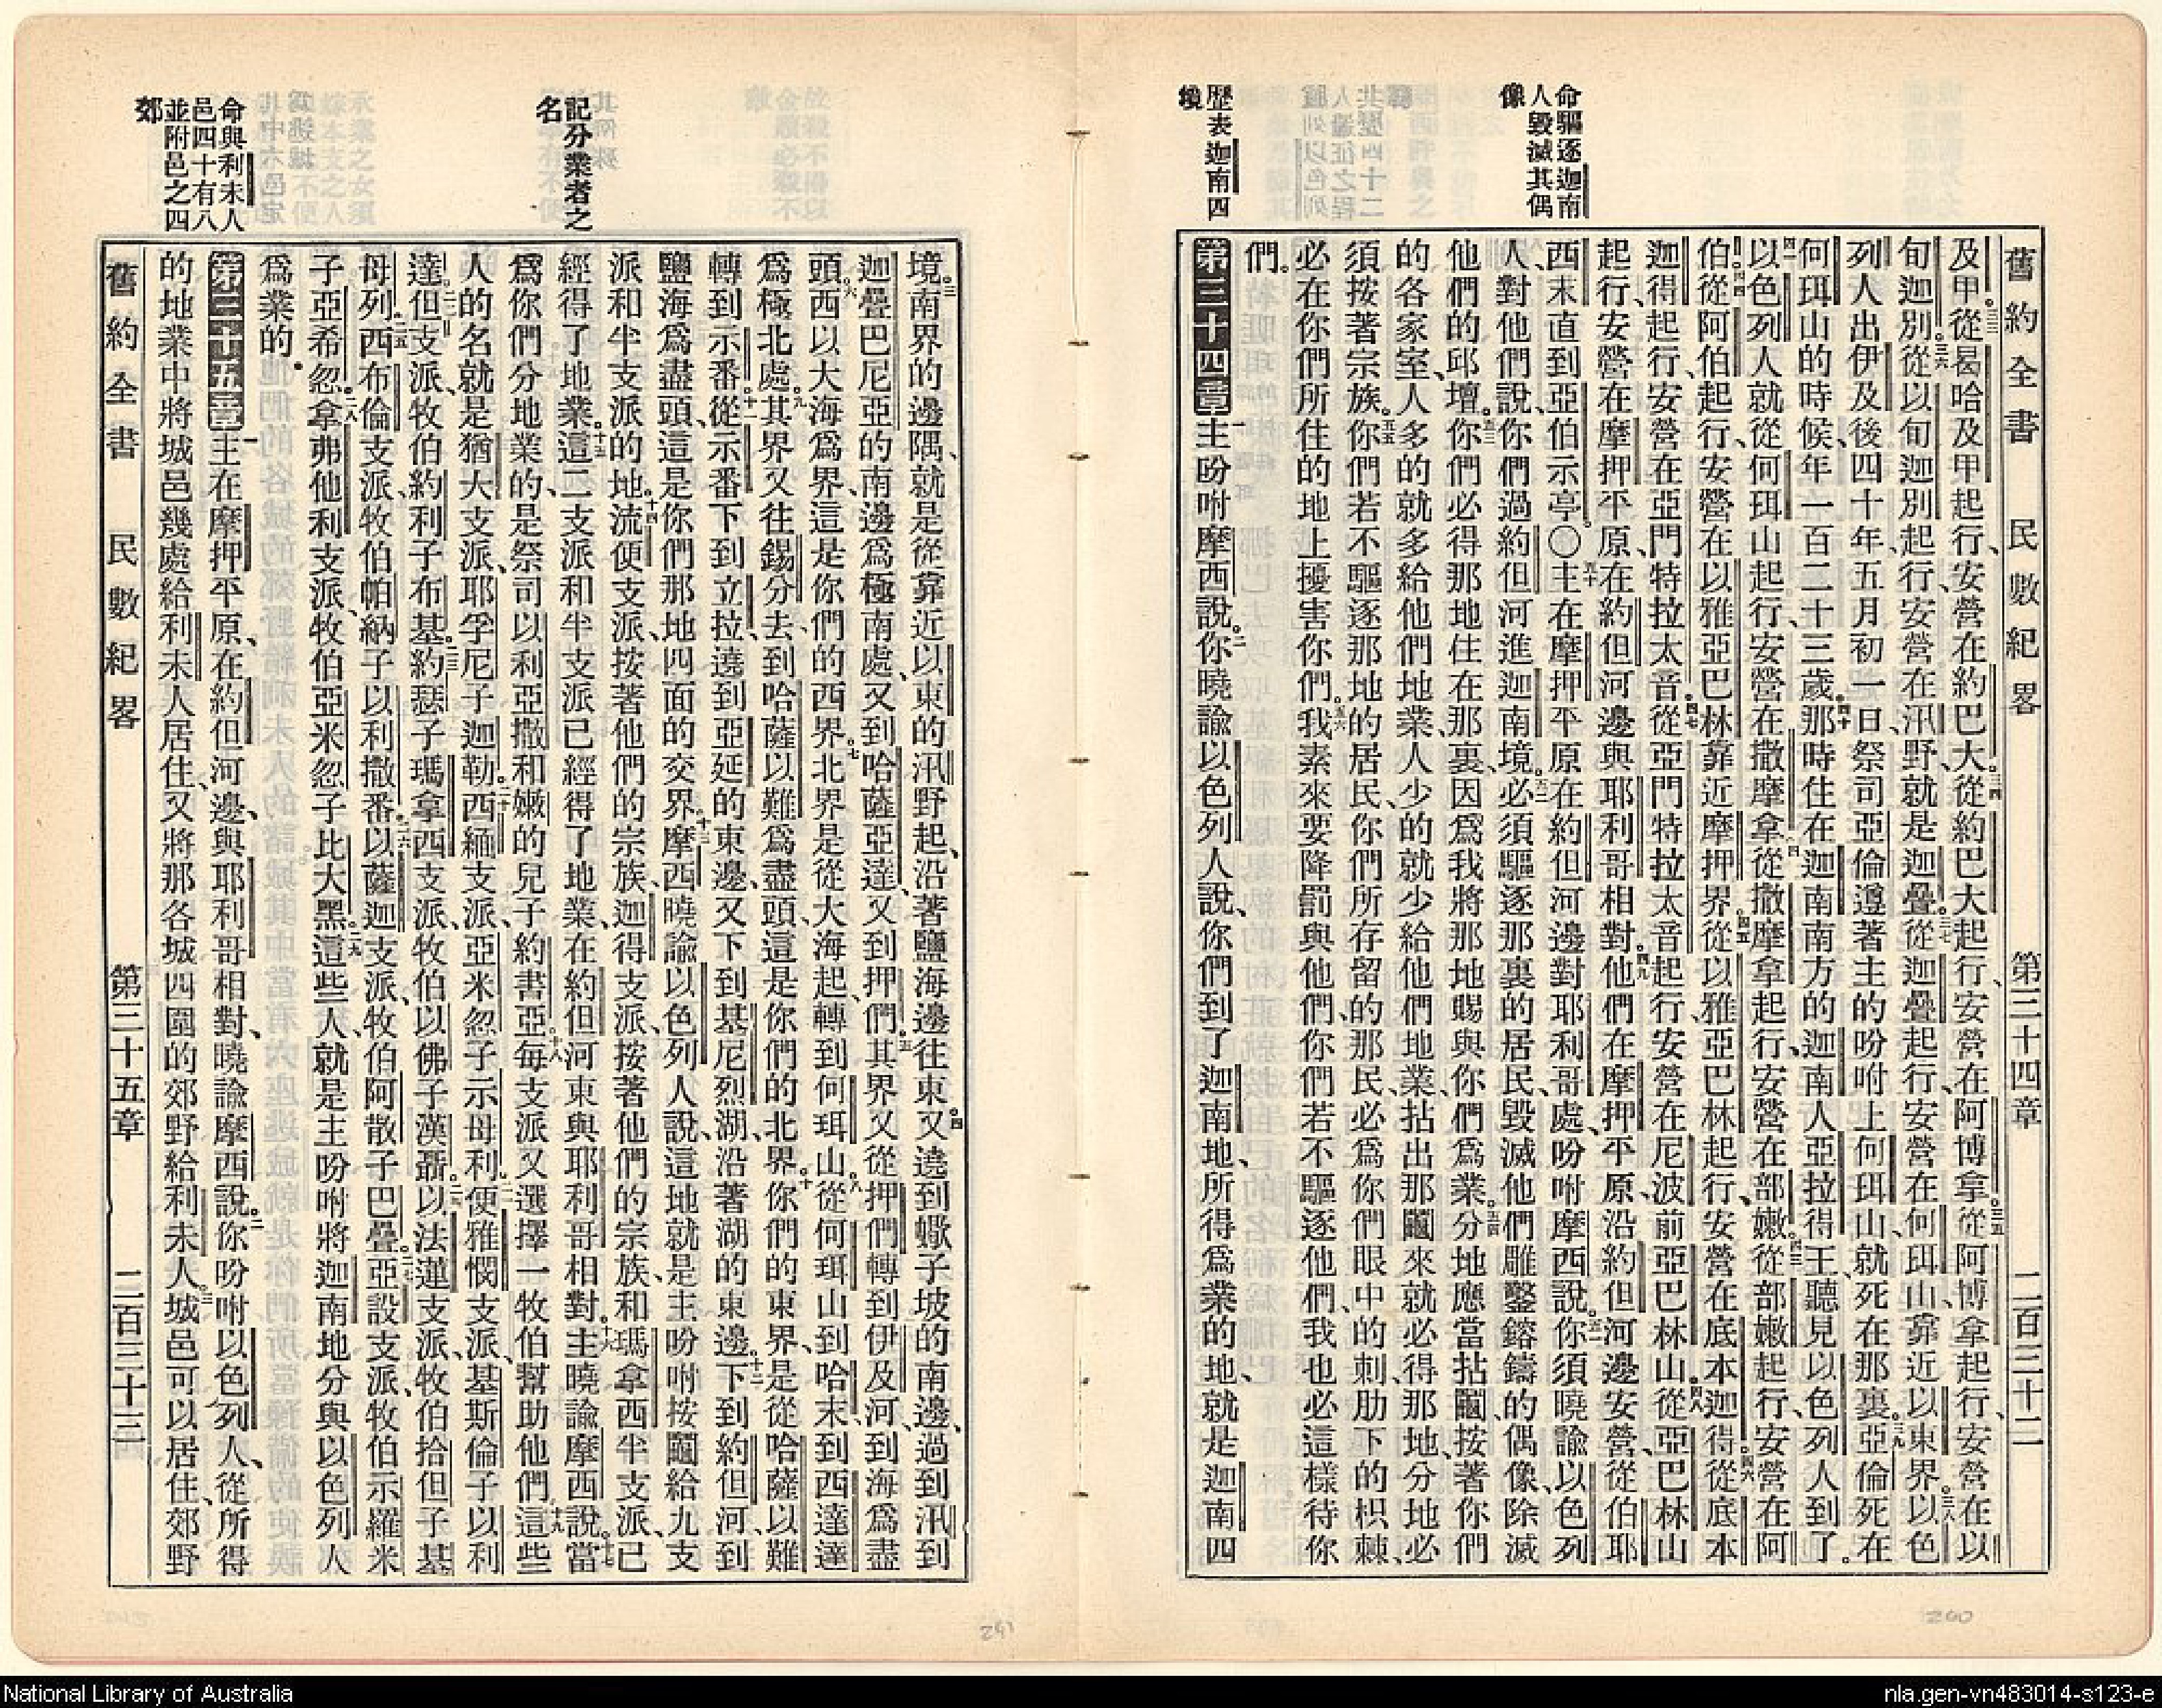 命驅逐迦南
人毀滅其偶
像
歷表迦南四
境
舊約全書 民數紀畧 第三十四章 二百三十二
及甲從曷哈及甲起行、安營在約巴大從約巴大起行、安營在阿博拿從阿博拿起行、安營在以
旬迦別從以旬迦別起行、安營在汛野就是迦疊從迦疊起行、安營在何珥山、靠近以東界以色
列人出伊及後四十年、五月初一日、祭司亞倫遵著主的吩咐上何珥山、就死在那裏亞倫死在
何珥山的時候、年一百二十三歲那時住在迦南南方的迦南人亞拉得王、聽見以色列人到了。
以色列人就從何珥山起行、安營在撒摩拿從撒摩拿起行、安營在部嫩從部嫩起行、安營在阿
伯從阿伯起行、安營在以雅亞巴林靠近摩押界從以雅亞巴林起行、安營在底本迦得從底本
迦得起行、安營在亞門特拉太音從亞門特拉太音起行、安營在尼波前亞巴林山從亞巴林山
起行、安營在摩押平原、在約但河邊與耶利哥相對他們在摩押平原、沿約但河邊安營、從伯耶
西末直到亞伯示亭。〇主在摩押平原在約但河邊對耶利哥處、吩咐摩西說你須曉諭以色列
人、對他們說、你們過約但河進迦南境必須驅逐那裏的居民、毀滅他們雕鑿鎔鑄的偶像、除滅
他們的邱壇。你們必得那地住在那裏、因爲我將那地賜與你們爲業。分地應當拈鬮、按著你們
的各家室、人多的就多給他們地業、人少的就少給他們地業、拈出那鬮來就必得那地、分地必
須按著宗族。你們若不驅逐那地的居民、你們所存留的那民、必爲你們眼中的刺、肋下的枳棘、
必在你們所住的地上擾害你們。我素來要降罰與他們、你們若不驅逐他們、我也必這樣待你
們。
第三十四章 主吩咐摩西說。你曉諭以色列人說、你們到了迦南地、所得爲業的地、就是迦南四
記分業者之
名
命與利未人
邑四十有八
並附邑之四
郊
境。南界的邊隅、就是從靠近以東的汛野起、沿著鹽海邊往東又遶到蠍子坡的南邊、過到汛到
迦疊巴尼亞的南邊爲極南處、又到哈薩亞達、又到押們其界又從押們轉到伊及河、到海爲盡
頭。西以大海爲界、這是你們的西界。北界是從大海起、轉到何珥山從何珥山到哈末、到西達達
爲極北處。其界又往錫分去、到哈薩以難爲盡頭、這是你們的北界。你們的東界、是從哈薩以難
轉到示番、從示番下到立拉、遶到亞延的東邊、又下到基尼烈湖、沿著湖的東邊。下到約但河、到
鹽海爲盡頭、這是你們那地四面的交界。摩西曉諭以色列人說、這地就是主吩咐按鬮給九支
派和半支派的地。流便支派、按著他們的宗族、迦得支派、按著他們的宗族、和瑪拿西半支派、已
經得了地業。這二支派和半支派已經得了地業、在約但河東與耶利哥相對。主曉諭摩西說。當
爲你們分地業的、是祭司以利亞撒和嫩的兒子約書亞。每支派又選擇一牧伯幫助他們。這些
人的名就是猶大支派、耶孚尼子迦勒。西緬支派、亞米忽子示母利。便雅憫支派、基斯倫子以利
達。但支派、牧伯約利子布基。約瑟子瑪拿西支派、牧伯以佛子漢聶。以法蓮支派、牧伯拾但子基
母列。西布倫支派、牧伯帕納子以利撒番。以薩迦支派、牧伯阿散子巴疊。亞設支派、牧伯示羅米
子亞希忽。拿弗他利支派、牧伯亞米忽子比大黑。這些人、就是主吩咐將迦南地分與以色列人
爲業的。
第三十五章 主在摩押平原、在約但河邊、與耶利哥相對、曉諭摩西說。你吩咐以色列人、從所得
的地業中將城邑幾處給利未人居住、又將那各城四圍的郊野給利未人。城邑可以居住、郊野
舊約全書 民數紀畧 第三十五章 二百三十三
National Library of Australia
nla.gen-vn483014-s123-e